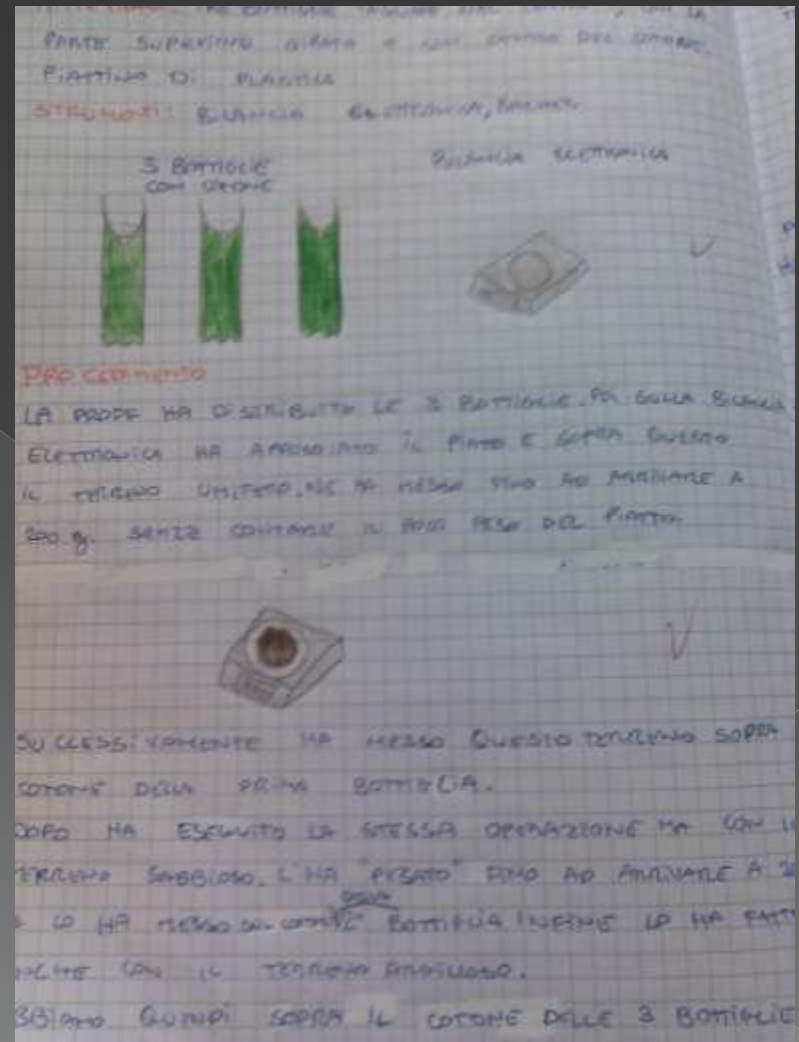 PARTE SUPERIORE GIRATA E CON DEL COTONE.
PIATTINO DI PLASTICA
STRUMENTI: BILANCIA ELETTRONICA, BACKER.
3 BOTTIGLIE
CON COTONE
BILANCIA ELETTRONICA
PROCEDIMENTO
LA PROF HA DISTRIBUITO LE 3 BOTTIGLIE. POI SULLA BILANCIA
ELETTRONICA HA APPOGGIATO IL PIATTO E SOPRA QUESTO
IL TERRENO UMIFERO. NE HA MESSO FINO AD ARRIVARE A
200 g. SENZA CONTARE IL PESO DEL PIATTO
SUCCESSIVAMENTE HA MESSO QUESTO TERRENO SOPRA
COTONE DELLA PRIMA BOTTIGLIA.
DOPO HA ESEGUITO LA STESSA OPERAZIONE MA CON IL
TERRENO SABBIOSO. L'HA "PESATO" FINO AD ARRIVARE A
E LO HA MESSO SUL COTONE BOTTIGLIA INFINE LO HA FATTO
ANCHE CON IL TERRENO ARGILLOSO.
ABBIAMO QUINDI SOPRA IL COTONE DELLE 3 BOTTIGLIE